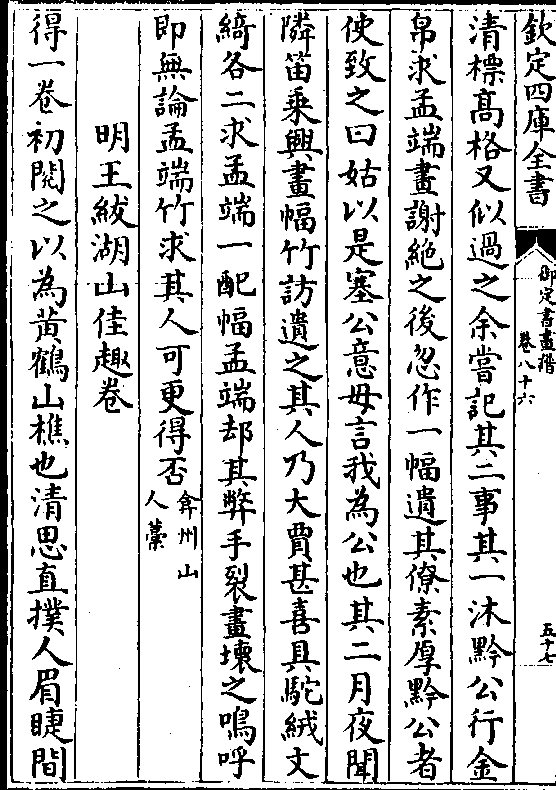 欽定四庫全書
御定書畫譜
卷八十六
五十七
清標高格又似過之余嘗記其二事其一沐黔公行金
帛求孟端畫謝絶之後忽作一幅遺其僚素厚黔公者
使致之曰姑以是塞公意毋言我為公也其二月夜聞
隣笛乗興畫幅竹訪遺之其人乃大賈甚喜具駝絨文
綺各二求孟端一配幅孟端却其幣手裂畫壊之嗚呼
即無論孟端竹求其人可更得否弇州山
人藁
明王紱湖山佳趣卷
得一卷初閱之以為黄鶴山樵也清思直撲人眉睫間